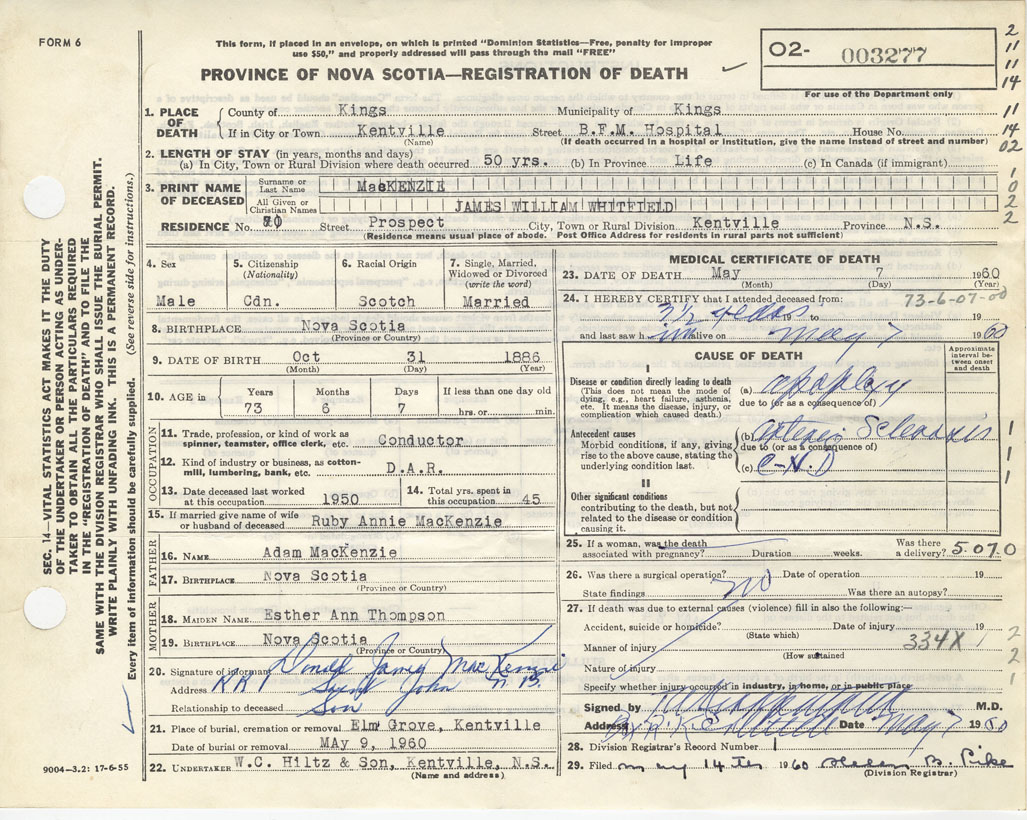 FORM 6
This form, if placed in an envelope, on which is printed "Dominion Statistics—Free, penalty for improper
use $50," and properly addressed will pass through the mail "FREE"
PROVINCE OF NOVA SCOTIA—REGISTRATION OF DEATH
O2- 003277
For use of the Department only
2
11
11
14
11
14
02
1
0
2
2
SEC. 14—VITAL STATISTICS ACT MAKES IT THE DUTY
OF THE UNDERTAKER OR PERSON ACTING AS UNDER-
TAKER TO OBTAIN ALL THE PARTICULARS REQUIRED
IN THE "REGISTRATION OF DEATH" AND TO FILE THE
SAME WITH THE DIVISION REGISTRAR WHO SHALL ISSUE THE BURIAL PERMIT.
WRITE PLAINLY WITH UNFADING INK. THIS IS A PERMANENT RECORD.
Every item of information should be carefully supplied. (See reverse side for instructions.)
1. PLACE OF DEATH
County of Kings Municipality of Kings
If in City or Town Kentville Street B.F.M. Hospital House No.
(Name) (If death occurred in a hospital or institution, give the name instead of street and number)
2. LENGTH OF STAY (in years, months and days)
(a) In City, Town or Rural Division where death occurred 50 yrs. (b) In Province Life (c) In Canada (if immigrant)
3. PRINT NAME OF DECEASED
Surname or Last Name MacKENZIE
All Given or Christian Names JAMES WILLIAM WHITFIELD
RESIDENCE No. Street Prospect City, Town or Rural Division Kentville Province N.S.
(Residence means usual place of abode. Post Office Address for residents in rural parts not sufficient)
4. Sex 5. Citizenship (Nationality) 6. Racial Origin 7. Single, Married, Widowed or Divorced (write the word)
Male Cdn. Scotch Married
8. BIRTHPLACE Nova Scotia
(Province or Country)
9. DATE OF BIRTH Oct 31 1886
(Month) (Day) (Year)
10. AGE in Years Months Days If less than one day old
73 6 7 hrs. or min.
OCCUPATION
11. Trade, profession, or kind of work as spinner, teamster, office clerk, etc. Conductor
12. Kind of industry or business, as cotton-mill, lumbering, bank, etc. D.A.R.
13. Date deceased last worked at this occupation 1950 14. Total yrs. spent in this occupation 45
15. If married give name of wife or husband of deceased Ruby Annie MacKenzie
FATHER
16. NAME Adam MacKenzie
17. BIRTHPLACE Nova Scotia
(Province or Country)
MOTHER
18. MAIDEN NAME Esther Ann Thompson
19. BIRTHPLACE Nova Scotia
(Province or Country)
20. Signature of informant Donald James MacKenzie
Address R R 1 Saint John N.B.
Relationship to deceased Son
21. Place of burial, cremation or removal Elm Grove, Kentville
Date of burial or removal MAY 9, 1960
22. UNDERTAKER W.C. Hiltz & Son, Kentville, N.S.
(Name and address)
9004—3.2: 17-6-55
MEDICAL CERTIFICATE OF DEATH
23. DATE OF DEATH May 7 1960
(Month) (Day) (Year)
24. I HEREBY CERTIFY that I attended deceased from: 73-6-07-00
3½ years 19 to 19
and last saw h im alive on May 7 1960
CAUSE OF DEATH
Approximate interval between onset and death
I
Disease or condition directly leading to death
(This does not mean the mode of dying, e.g., heart failure, asthenia, etc. It means the disease, injury, or complication which caused death.)
(a) apoplexy
due to (or as a consequence of)
Antecedent causes
Morbid conditions, if any, giving rise to the above cause, stating the underlying condition last.
(b) arterio Sclerosis
due to (or as a consequence of)
(c) C-V.D
1
1
1
1
II
Other significant conditions
contributing to the death, but not related to the disease or condition causing it.
25. If a woman, was the death associated with pregnancy? Duration weeks. Was there a delivery? 5.07.0
26. Was there a surgical operation? no Date of operation 19
State findings Was there an autopsy?
27. If death was due to external causes (violence) fill in also the following:—
Accident, suicide or homicide? Date of injury 19
(State which)
Manner of injury 334X
(How sustained)
Nature of injury
2
2
1
Specify whether injury occurred in industry, in home, or in public place
Signed by M.D.
Address Kentville Date May 7 1960
28. Division Registrar's Record Number 1
29. Filed 14 1960 B. Pike
(Division Registrar)